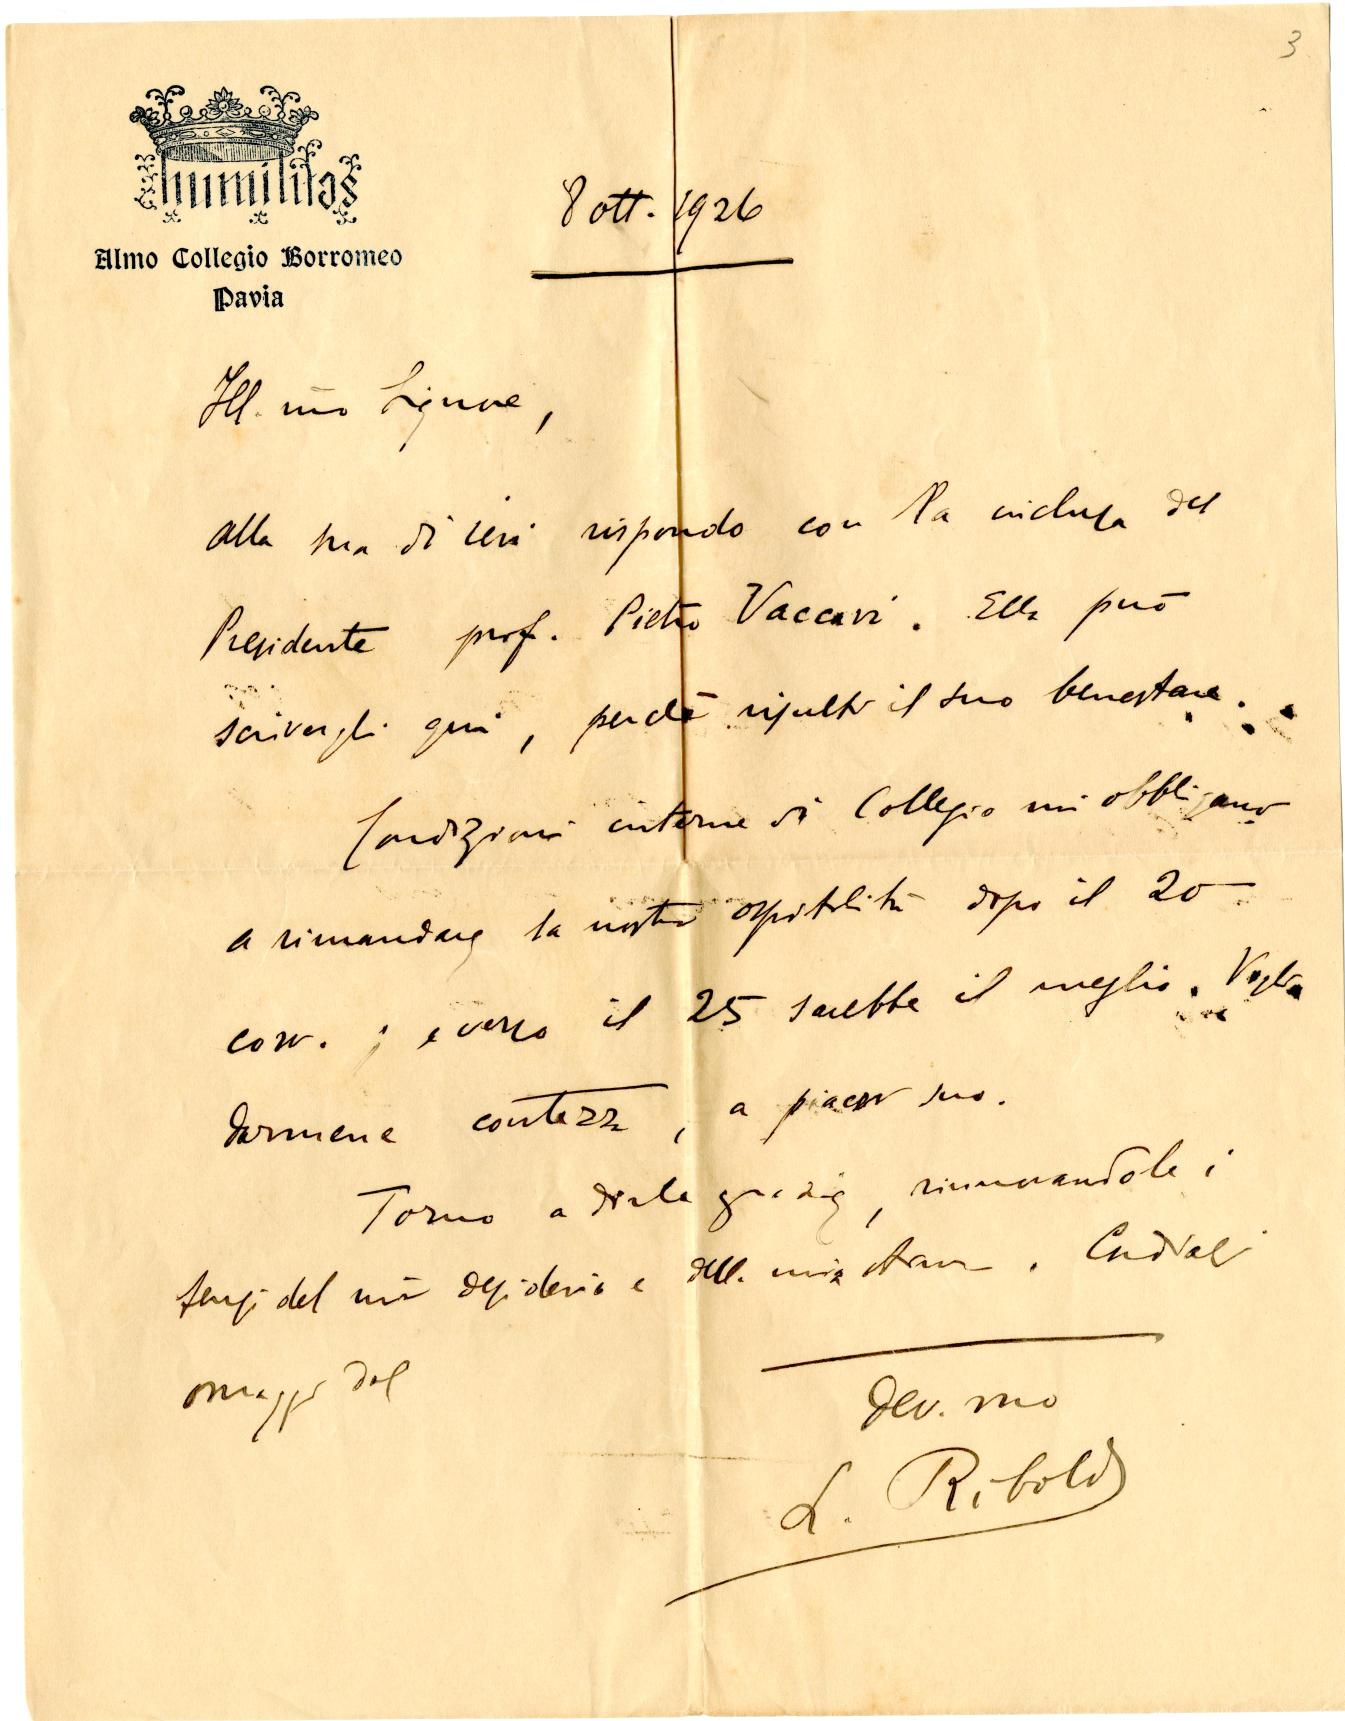 3
humilitas
Almo Collegio Borromeo
Pavia
8 ott. 1926
Ill.mo Signore,
alla sua di ieri rispondo con la inclusa del
Presidente prof. Pietro Vaccari. Ella può
scrivergli qui, perchè risulti il suo benestare.
Condizioni interne di Collegio mi obbligano
a rimandare la nostra ospitalità dopo il 20
corr.; e verso il 25 sarebbe il meglio. Voglia
darmene contezza, a piacer suo.
Torno a dirle grazie, rinnovandole i
sensi del mio desiderio e della mia stima. Cordiali
omaggi dal
dev.mo
L. Riboldi